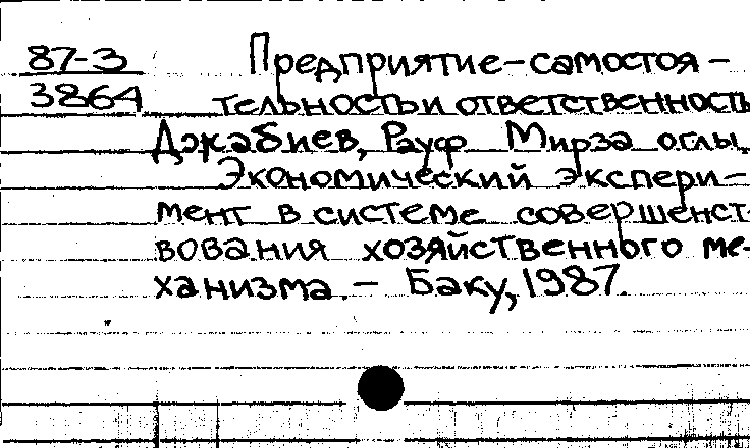 87-3 Предприятие-самостоя-
3864 тельность и ответственность
Джабиев, Рауф Мирза оглы.
Экономический экспери-
мент в системе совершенст-
вования хозяйственного ме-
ханизма. - Баку, 1987.